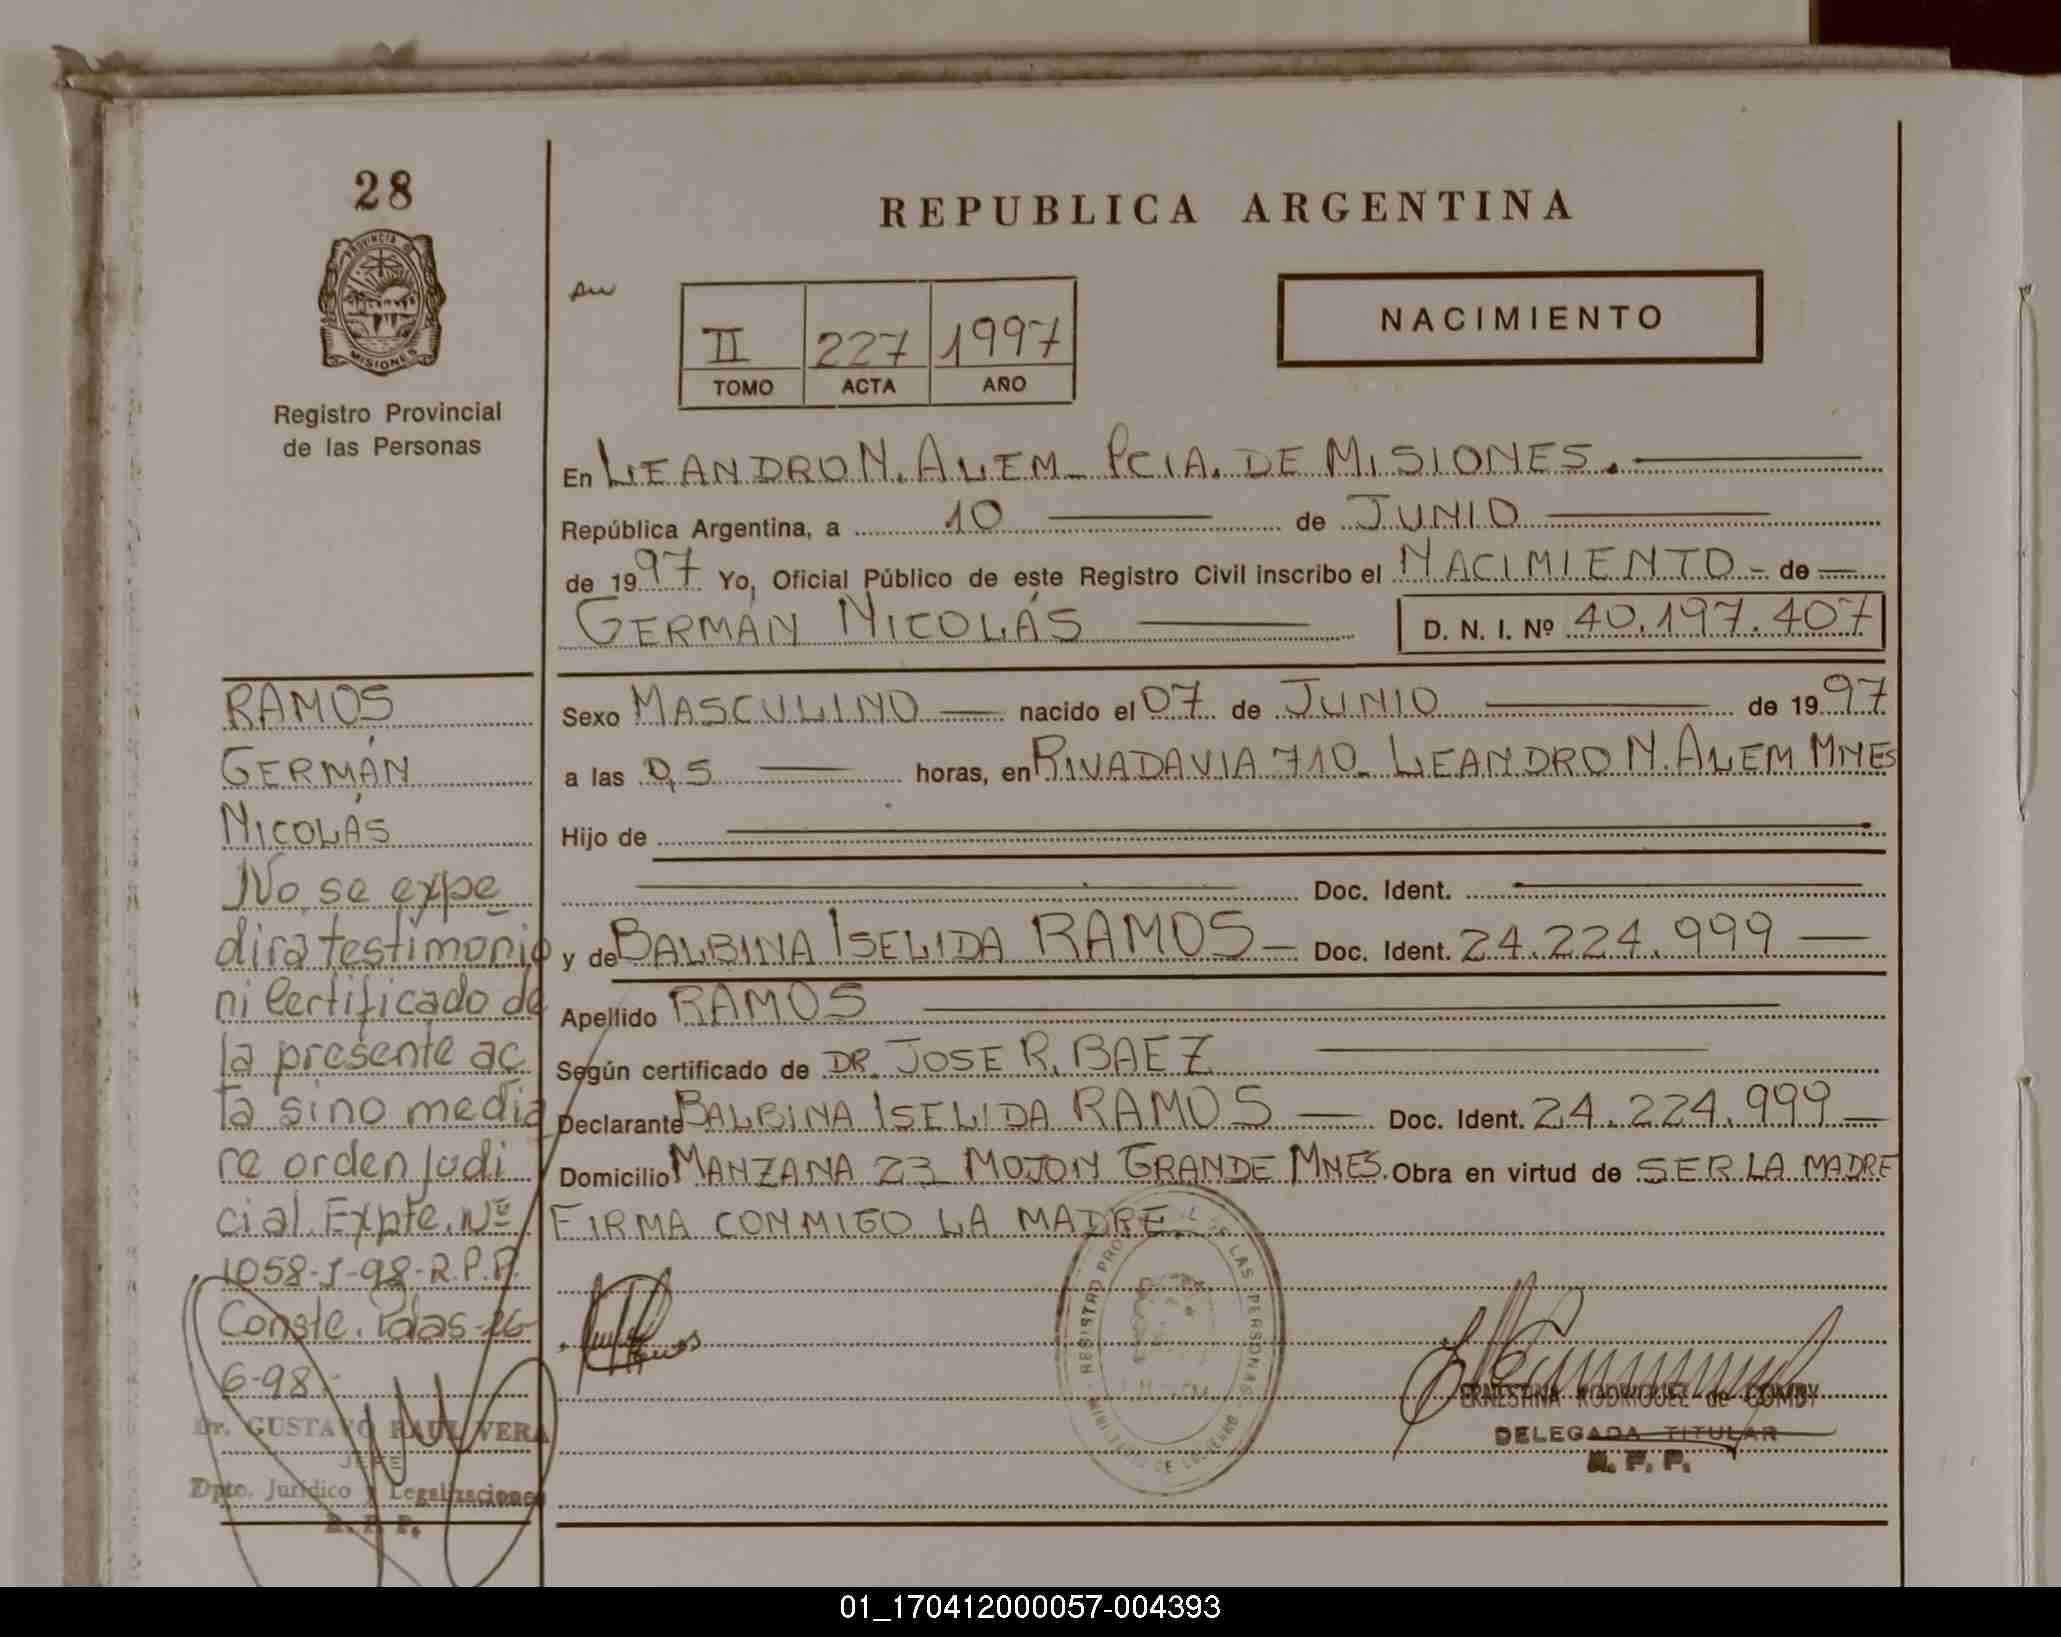 28
PROVINCIA DE
MISIONES
Registro Provincial
de las Personas
REPUBLICA ARGENTINA
II 227 1997
TOMO ACTA AÑO
NACIMIENTO
En LEANDRO N. ALEM - PCIA. DE MISIONES.
República Argentina, a 10 de JUNIO
de 1997 Yo, Oficial Público de este Registro Civil inscribo el NACIMIENTO - de
GERMÁN NICOLÁS D. N. I. Nº 40.197.407
Sexo MASCULINO nacido el 07 de JUNIO de 1997
a las 0,5 horas, en RIVADAVIA 710 - LEANDRO N. ALEM MNES
Hijo de
Doc. Ident.
y de BALBINA ISELIDA RAMOS - Doc. Ident. 24.224.999
Apellido RAMOS
Según certificado de DR. JOSE R. BAEZ
Declarante BALBINA ISELIDA RAMOS Doc. Ident. 24.224.999
Domicilio MANZANA 23 MOJON GRANDE MNES. Obra en virtud de SER LA MADRE
FIRMA CONMIGO LA MADRE
RAMOS
GERMÁN
NICOLÁS
No se expe
dira testimonio
ni Certificado de
la presente ac
ta sino media
re orden Judi
cial. Expte. Nº
1058-I-98-R.P.P.
Conste. Pdas-26-
6-98.-
Dr. GUSTAVO RAUL VERA
JEFE
Dpto. Jurídico y Legalizaciones
R. P. P.
REGISTRO PROVINCIAL DE LAS PERSONAS
MINISTERIO DE GOBIERNO
ERNESTINA RODRIGUEZ de COMBY
DELEGADA TITULAR
R. P. P.
01_170412000057-004393